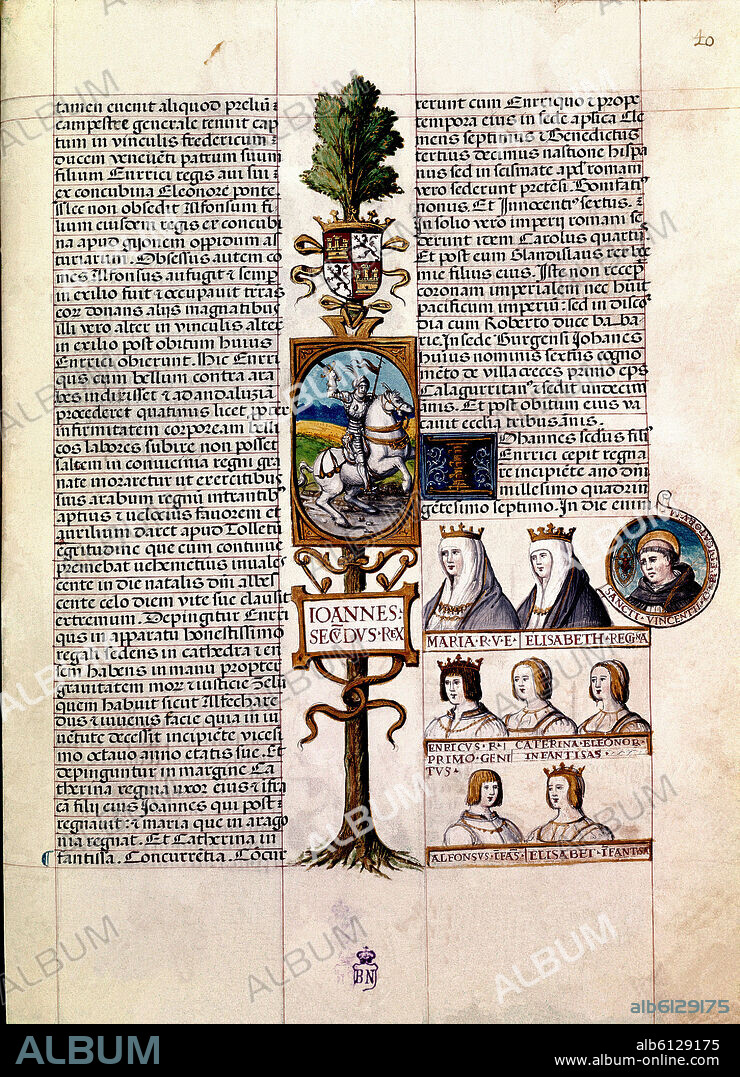 40
tamen evenit aliquod preliũ ⁊
campestre generale tenuit cap
tum in vinculis fredericum
ducem venevẽti patrum suum
filium Enrici regis avi sui ⁊
ex concubina Eleonore ponte
Iste non obsedit Alfonsum fi
lium eiusdem regis ex concubi
na apud gijonem oppidum as
turiarum. Obsessus autem co
mes Alfonsus aufugit ⁊ semp
in exilio fuit ⁊ occupavit teras
eor donans alijs magnatibus
illi vero alter in vinculis alter
in exilio post obitum huius
Enrici obierunt. Hic Enri
qus cum bellum contra ara
bes indixisset ⁊ ad andaluzia
procederet quatinus licet, propter
infirmitatem corpoream
cos labores subire non posset
saltem in convicinia regni gra
nate moraretur ut exercitibus
suis arabum regnũ intrantibus
aptius ⁊ velocius favorem et
auxilium daret apud Tolletũ
egritudine que cum continue
premebat vehemetius invales
cente in die natalis dm̃ albes
cente celo diem vite sue clausit
extremum. Depingitur Enri
qus in apparatu honestissimo
regali sedens in cathedra ⁊ en
sem habens in manu propter
gravitatem mor ⁊ iusticie zelũ
quem habuit sicut
dus ⁊ iuvenis facie quia in iu
vẽtute decessit incipiẽte vicesi
mo octavo anno etatis sue. Et
depinguntur in margine Ca
therina regina uxor eius ⁊ ifra
ca filij eius Joannes qui post
regnavit: ⁊ maria que in arago
nia regnat. Et Catherina in
fantissa. Concurretia. Cõcur
rerunt cum Enriquo ⁊ prope
tempora eius in sede aplica Cle
mens septimus ⁊ Benedictus
tertius decimus nastione hispa
nus sed in scismate apd romani
vero sederunt pretẽsi. Bonifati
nonus. Et Innocentius sextus.
In solio vero imperij romani se
derunt idem Carolus quartus
Et post eum Glandislaus
me filius eius. Iste non recep
coronam imperialem nec huit
pacificum imperiũ: sed in disco
dia cum Roberto duce ba_ba
rie. In sede Burgensi Johanes
huius nominis sextus cogno
mẽto de villa creces primo eps
Calagurritanus sedit undecim
anis. Et post obitum eius va
cavit ecclia tribus anis.
Ohannes secdus filius
Enrici cepit regna
re incipiẽte ano dni
millesimo quadrin
gẽtesimo septimo. In die eium
IOANNES
SECVDVS REX
SANCTI VINCENTII
MARIA·R·V·E· ELISABETH·REGINA
ENRICVS·R·I CATERINA·ELEONOR·
PRIMO·GENI INFANTISAS·
TVS·
ALFONSVS·IFAS· ELISABET·IFANTISA
BN
ALBUM
alb6129175
ALBUM
alb6129175
www.album-online.com